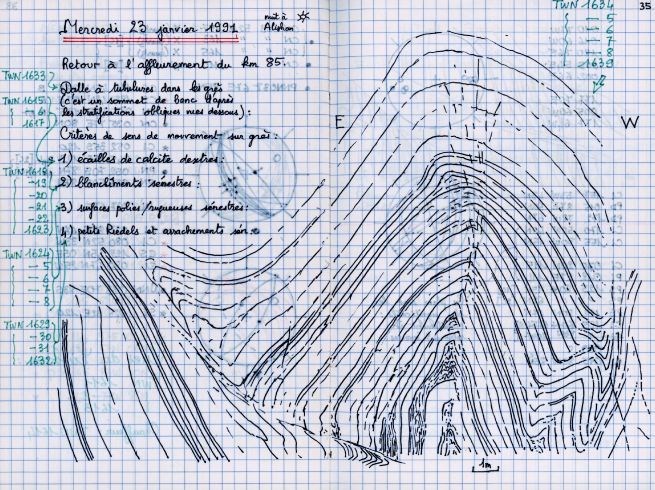 Mercredi 23 janvier 1991
nuit à
Alishan
Retour à l'affleurement du km 85.
TWN 1633
Dalle à tubulures dans les grès
(c'est un sommet de banc d'après
les stratifications obliques mes dessous) :
TWN 1615
- 6
1617
Critères de sens de mouvement sur grès :
1) écailles de calcite dextres :
TWN 1618
- 19
- 20
- 21
- 22
1623
2) blanchiments sénestres :
3) surfaces polies/rugueuses sénestres :
4) petits Riedels et arrachements sén
TWN 1624
- 5
- 6
- 7
- 8
TWN 1629
- 30
- 31
1632
TWN 1634
- 5
- 6
- 7
- 8
1639
35
E
W
1m